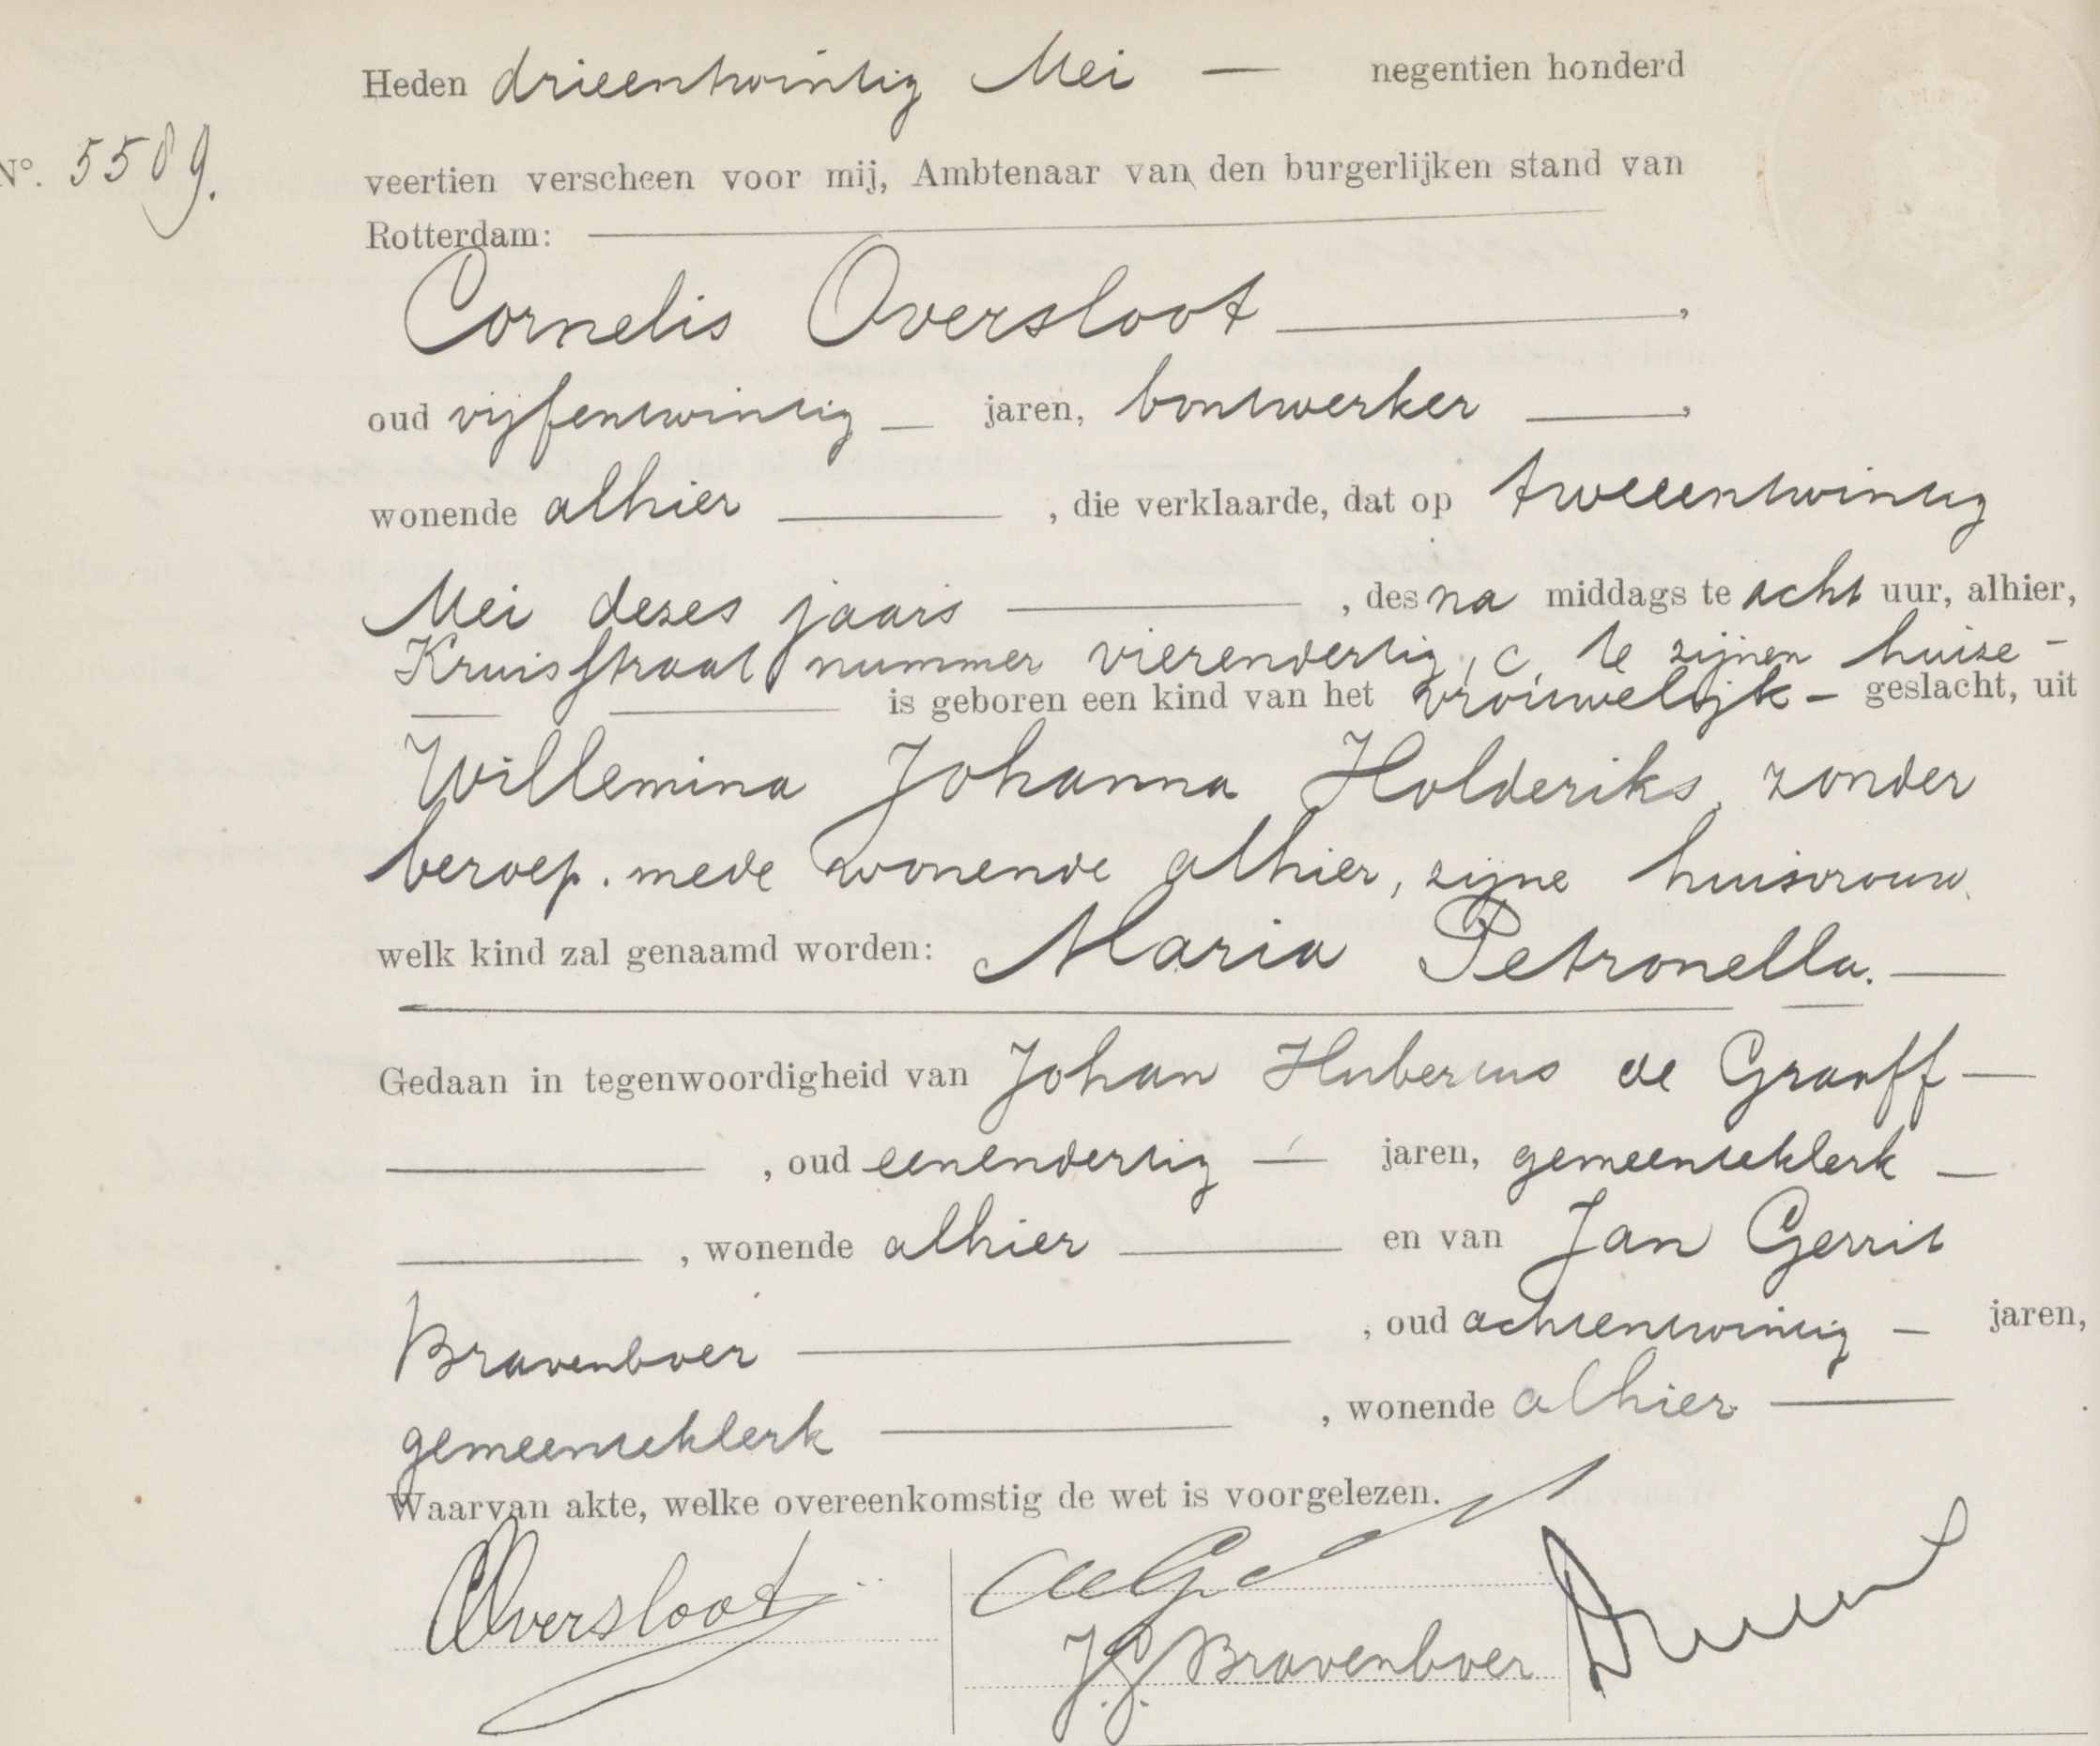 Heden drieentwintig Mei — negentien honderd
No. 5589.
veertien verscheen voor mij, Ambtenaar van den burgerlijken stand van
Rotterdam:
Cornelis Oversloot ,
oud vijfentwintig — jaren, bontwerker — ,
wonende alhier — , die verklaarde, dat op tweeentwintig
Mei dezes jaars — , des na middags te acht uur, alhier,
Kruisstraat nummer vierendertig, c, te zijnen huize —
is geboren een kind van het vrouwelijk — geslacht, uit
Willemina Johanna Holderiks, zonder
beroep. mede wonende alhier, zijne huisvrouw
welk kind zal genaamd worden: Maria Petronella. —
Gedaan in tegenwoordigheid van Johan Hubertus de Graaff —
— , oud eenendertig — jaren, gemeenteklerk —
— , wonende alhier — en van Jan Gerrit
Bravenboer — , oud achtentwintig — jaren,
gemeenteklerk — , wonende alhier —
Waarvan akte, welke overeenkomstig de wet is voorgelezen.
COversloot
deG
J.G. Bravenboer